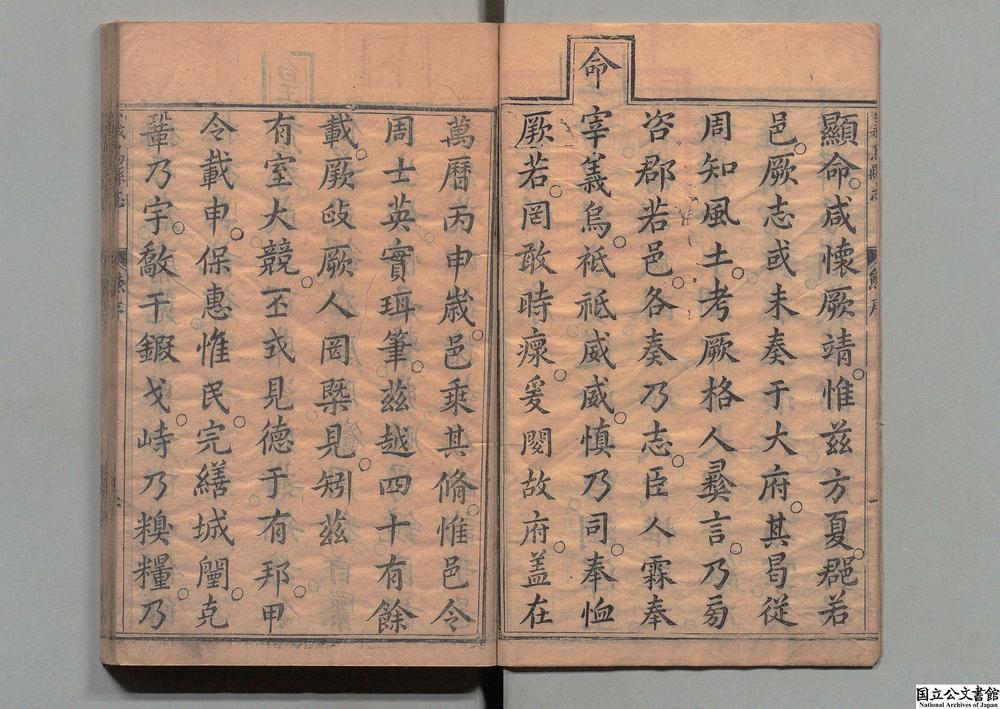 顯命咸懷厥靖惟茲方夏郡若
邑厥志或未奏于大府其曷從
周知風土考厥格人彛言乃旁
咨郡若邑各奏乃志臣人霖奉
命
宰義烏祗祗威威慎乃司奉恤
厥若罔敢時瘝爰閱故府蓋在
萬曆丙申歲邑乗其脩惟邑令
周士英實珥筆茲越四十有餘
載厥政厥人罔槩見矧茲
有室大競丕式見德于有邦甲
令載申保惠惟民完繕城闉克
鞏乃宇敿干鍜戈峙乃糗糧乃
国立公文書館
National Archives of Japan